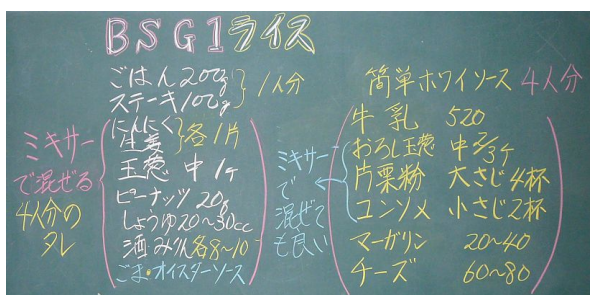 BSG1ライス
ごはん200g
ステーキ100g
1人分
ミキサー
で混ぜる
4人分の
タレ
にんにく
生姜
各1片
玉葱 中1ケ
ピーナッツ20g
しょうゆ20~30cc
酒・みりん各8~10
ごま・オイスターソース
簡単ホワイソース 4人分
牛乳 520
おろし玉葱 中2/3ケ
片栗粉 大さじ4杯
コンソメ 小さじ2杯
マーガリン 20~40
チーズ 60~80
ミキサー
で
混ぜて
も良い